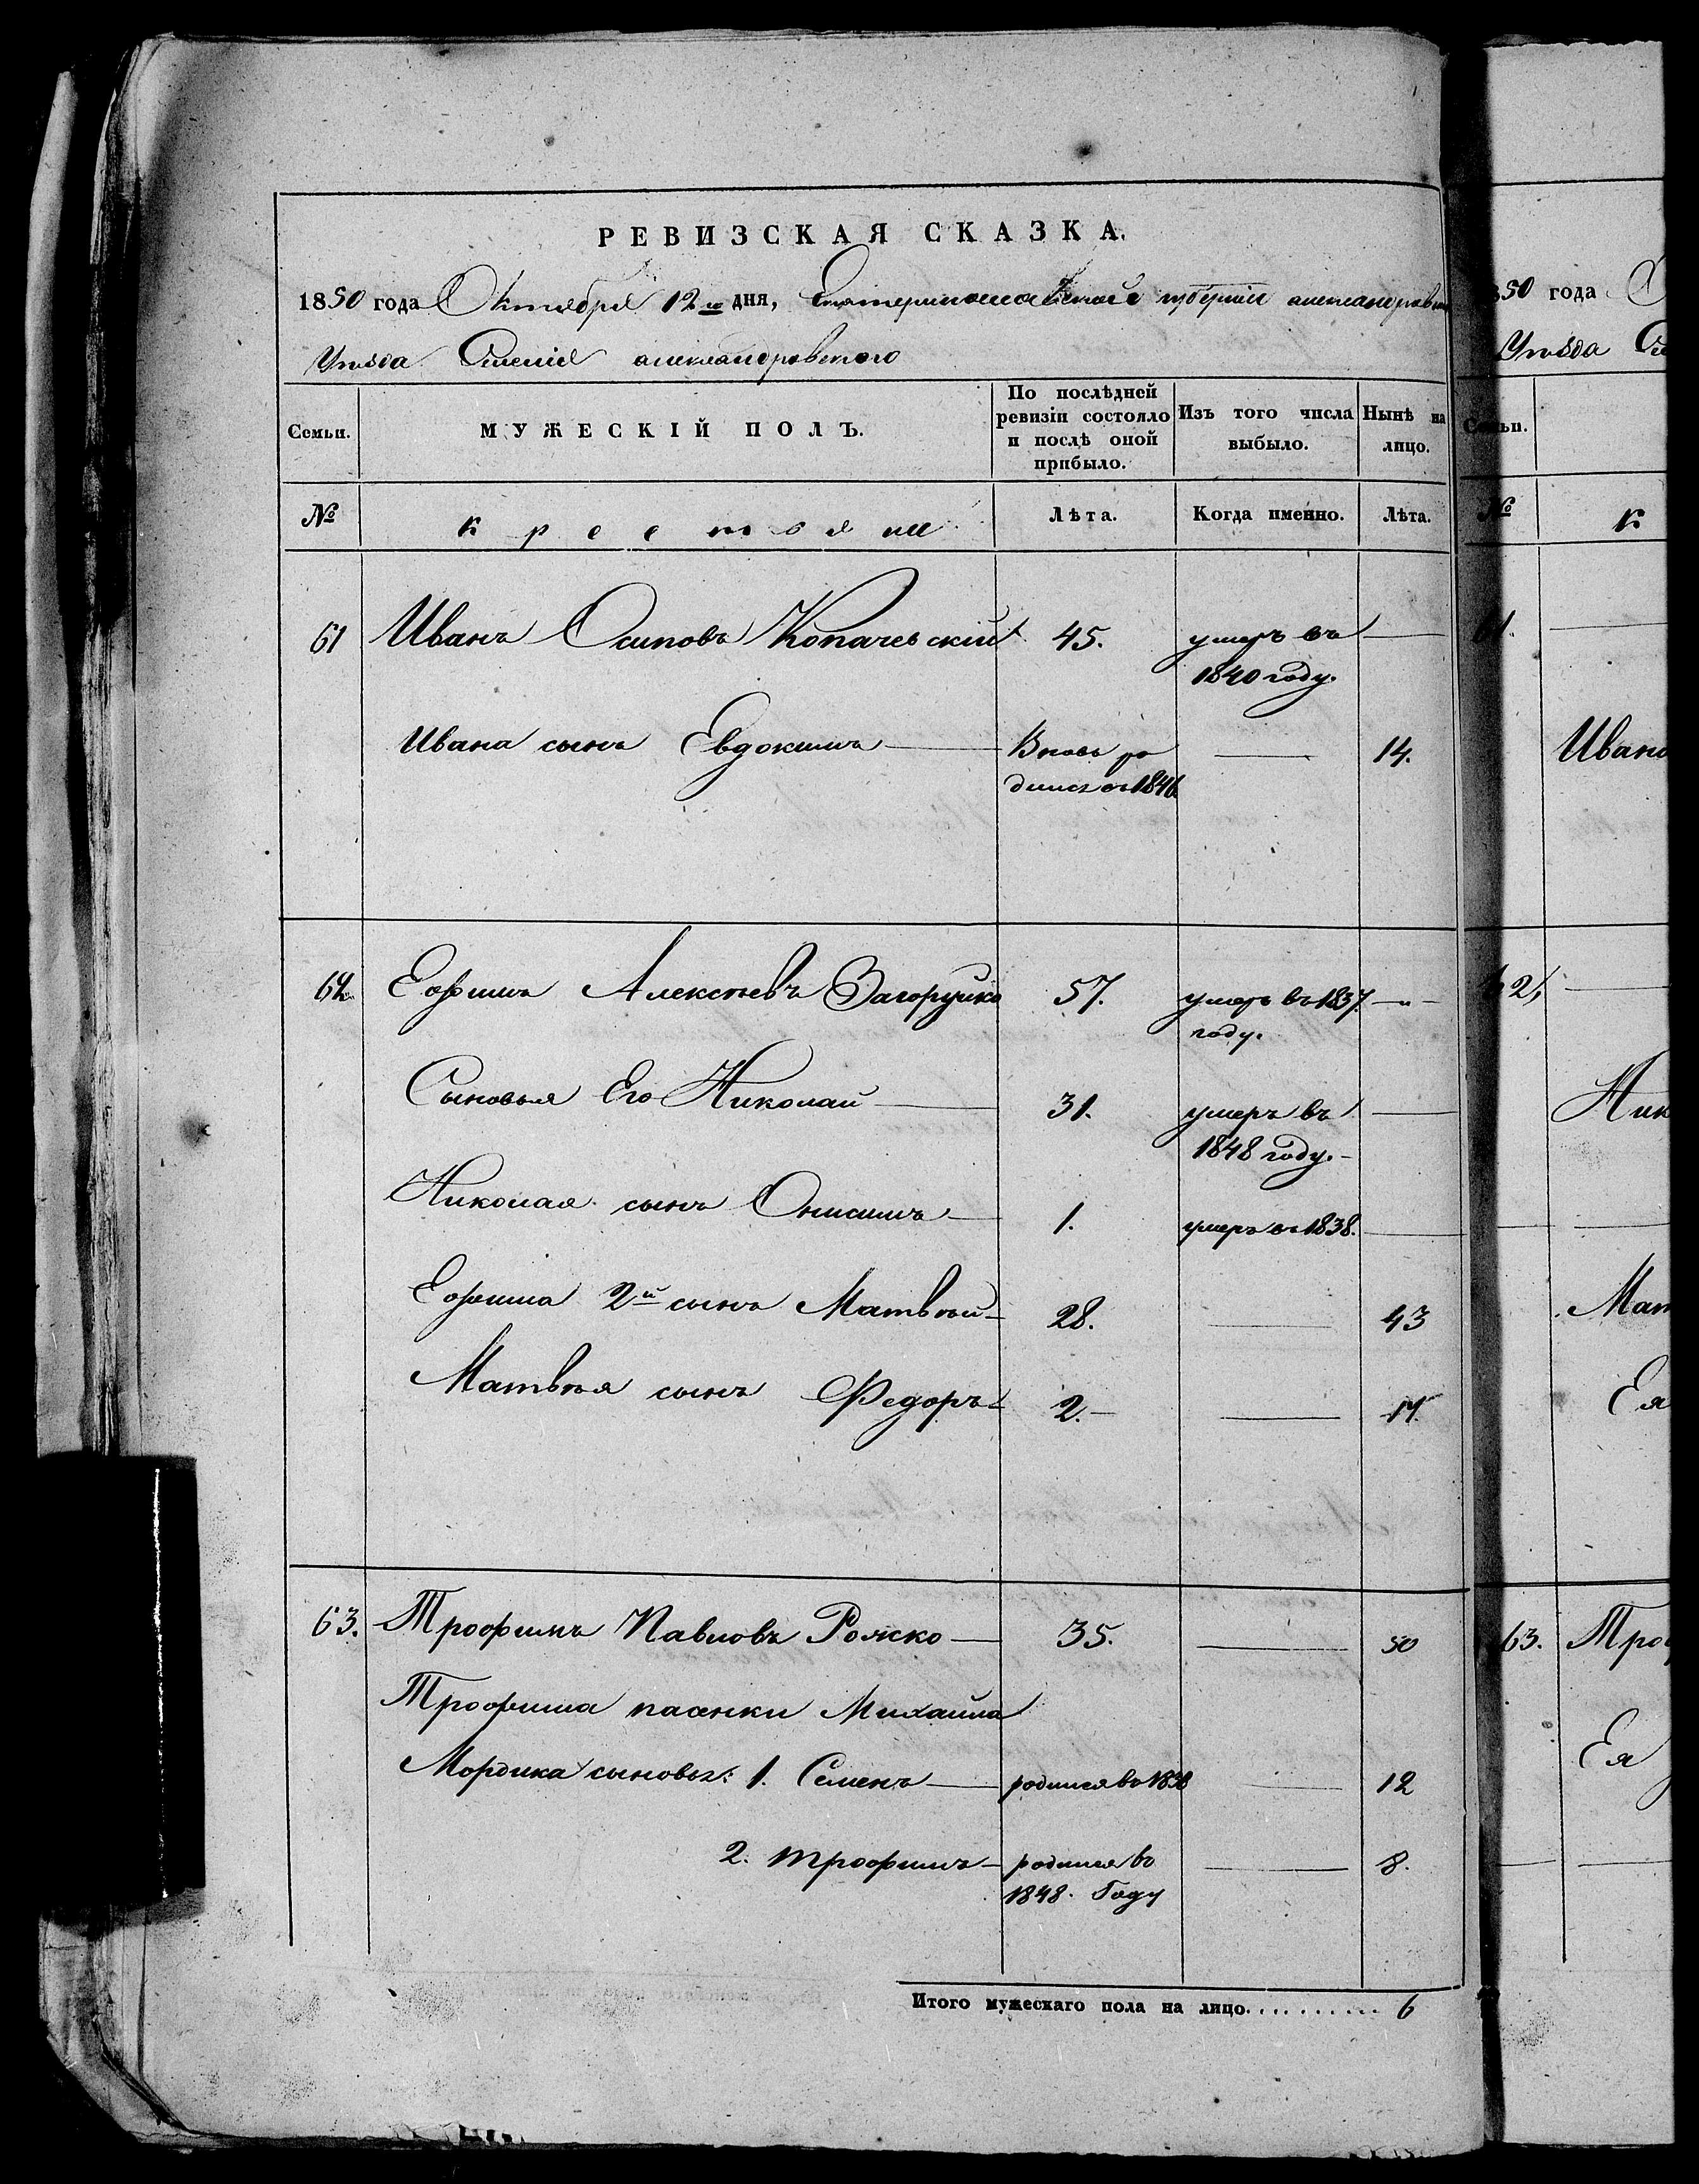 РЕВИЗСКАЯ СКАЗКА.
1850 года Октября 12го дня, Екатеринославской губернiи александровск
Уѣзда Селенiе александровского
Семьи. МУЖЕСКIЙ ПОЛЪ. По послѣдней ревизiи состояло и послѣ оной прибыло. Изъ того числа выбыло. Нынѣ на лицо.
№ крестьяне Лѣта. Когда именно. Лѣта.
61 Иванъ Осиповъ Копачевскiй 45. умеръ въ —
1840 году.
Ивана сынъ Евдокимъ — Вновь ро — 14.
дился въ
62. Ефимъ Алексѣевъ Загоруйко 57. умеръ въ 1837. — " —
году.
Сыновья Его Николай — 31. умеръ въ —
1848 году. —
Николая сынъ Онисимъ — 1. умеръ въ 1838. —
Ефима 2й сынъ Матвѣй — 28. — 43
Матвѣя сынъ Федоръ — 2. — — 17.
63. Трофимъ Павловъ Рожко — 35. — 50
Трофима пасынки Михаила
Мордика сыновья: 1. Семенъ — родился въ 1838 — 12
2. трофимъ — родился въ — 8.
1848. Году
Итого мужескаго пола на лицо. . . . . . . . . . 6
50 года О
Уѣзда Се
Семьи.
№ к
61. —
Ивано
62, —
Ник
Мат
Ея
63. Троф
Ея